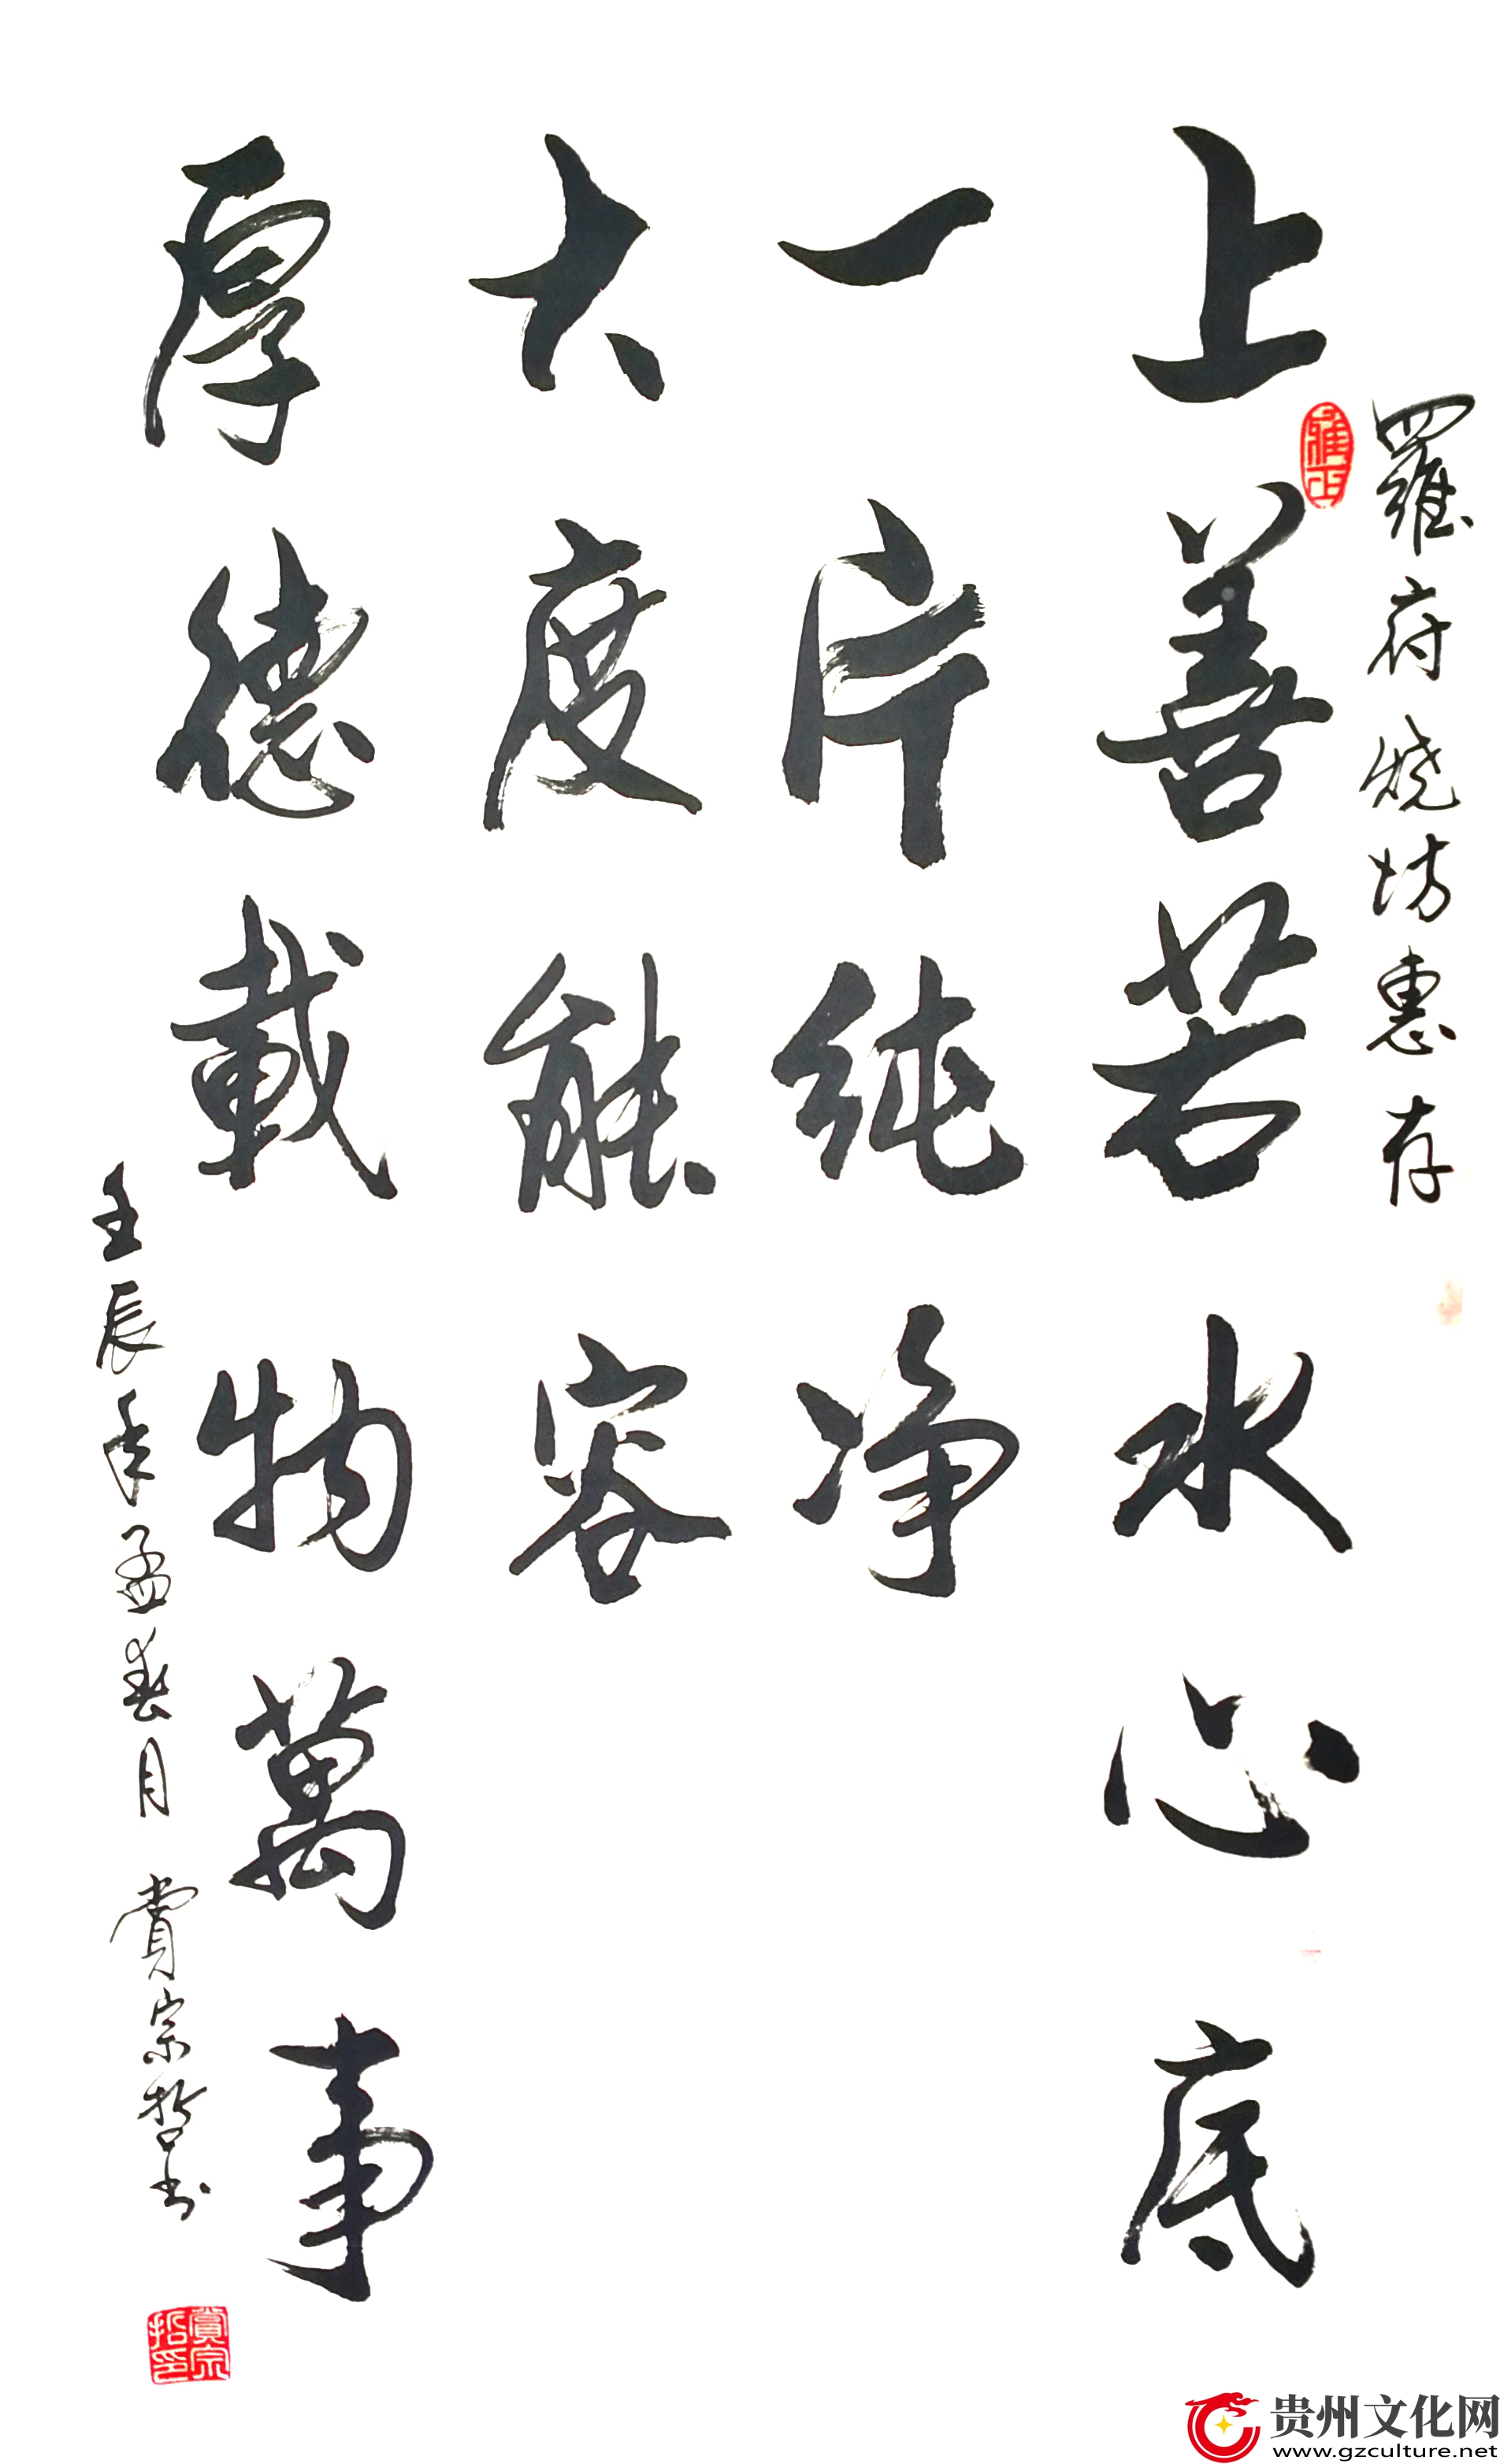 羅府燒坊惠存
雅正
上善若水心底
一片纯净
大度能容
厚德載物萬事
壬辰年孟春月 賞宗哲书
賞宗哲印
贵州文化网
www.gzculture.net